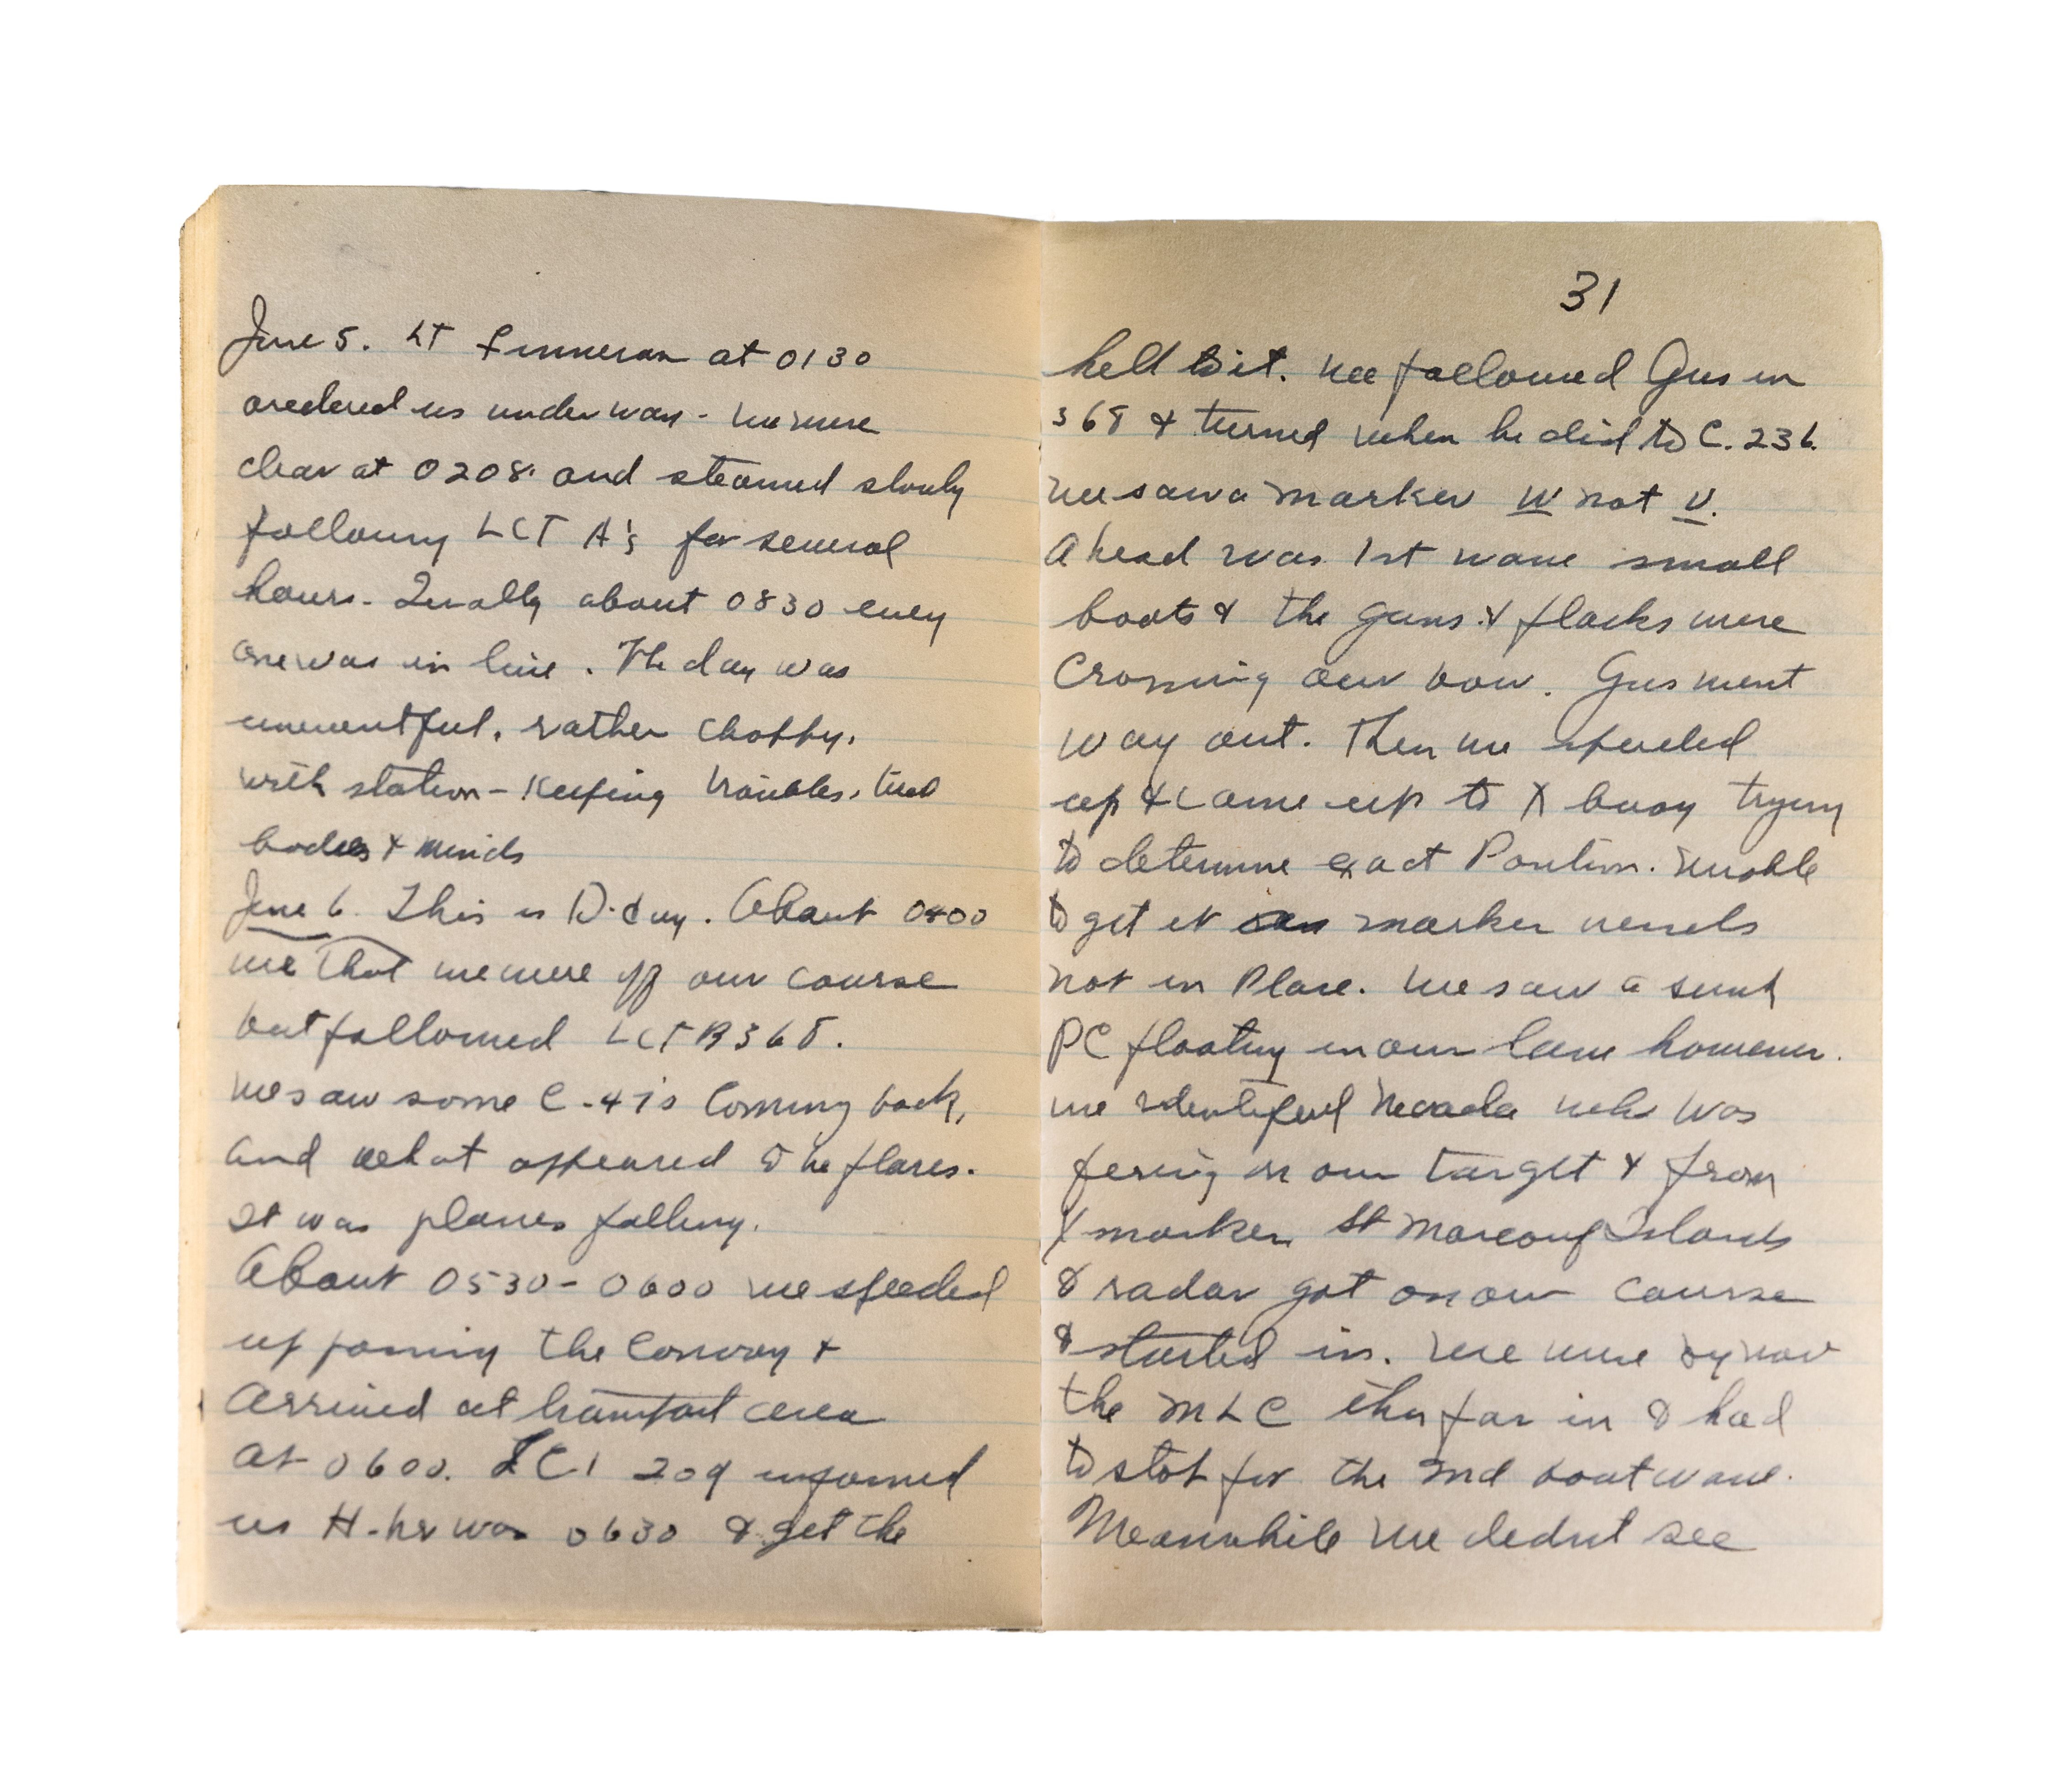 June 5. LT Finneran at 0130
ordered us underway - we were
clear at 0208. and steamed slowly
following LCT A's for several
hours. Finally about 0830 every
one was in line. The day was
uneventful, rather choppy,
with station-keeping troubles, tired
bodies & minds
June 6. This is D-day. About 0400
we that we were off our course
but followed LCT R 368.
We saw some C-47s coming back,
and what appeared to be flares.
It was planes falling.
About 0530-0600 we speeded
up passing the convoy &
arrived at transport area
at 0600. LCI 209 informed
us H-hr was 0630 & get the
31
hell to it. We followed Gus in
368 & turned when he did to C. 236.
We saw a marker W not V.
Ahead was 1st wave small
boats & the guns & flacks were
crossing our bow. Gus went
way out. Then we speeded
up & came up to X buoy trying
to determine exact position. Unable
to get it as marker vessels
not in place. We saw a sunk
PC floating in our lane however.
we identified Nevada who was
firing on our target & from
X marker St Marcouf Islands
& radar got on our course
& started in. We were by now
the MLC far in & had
to stop for the 2nd boat wave.
Meanwhile we didnt see